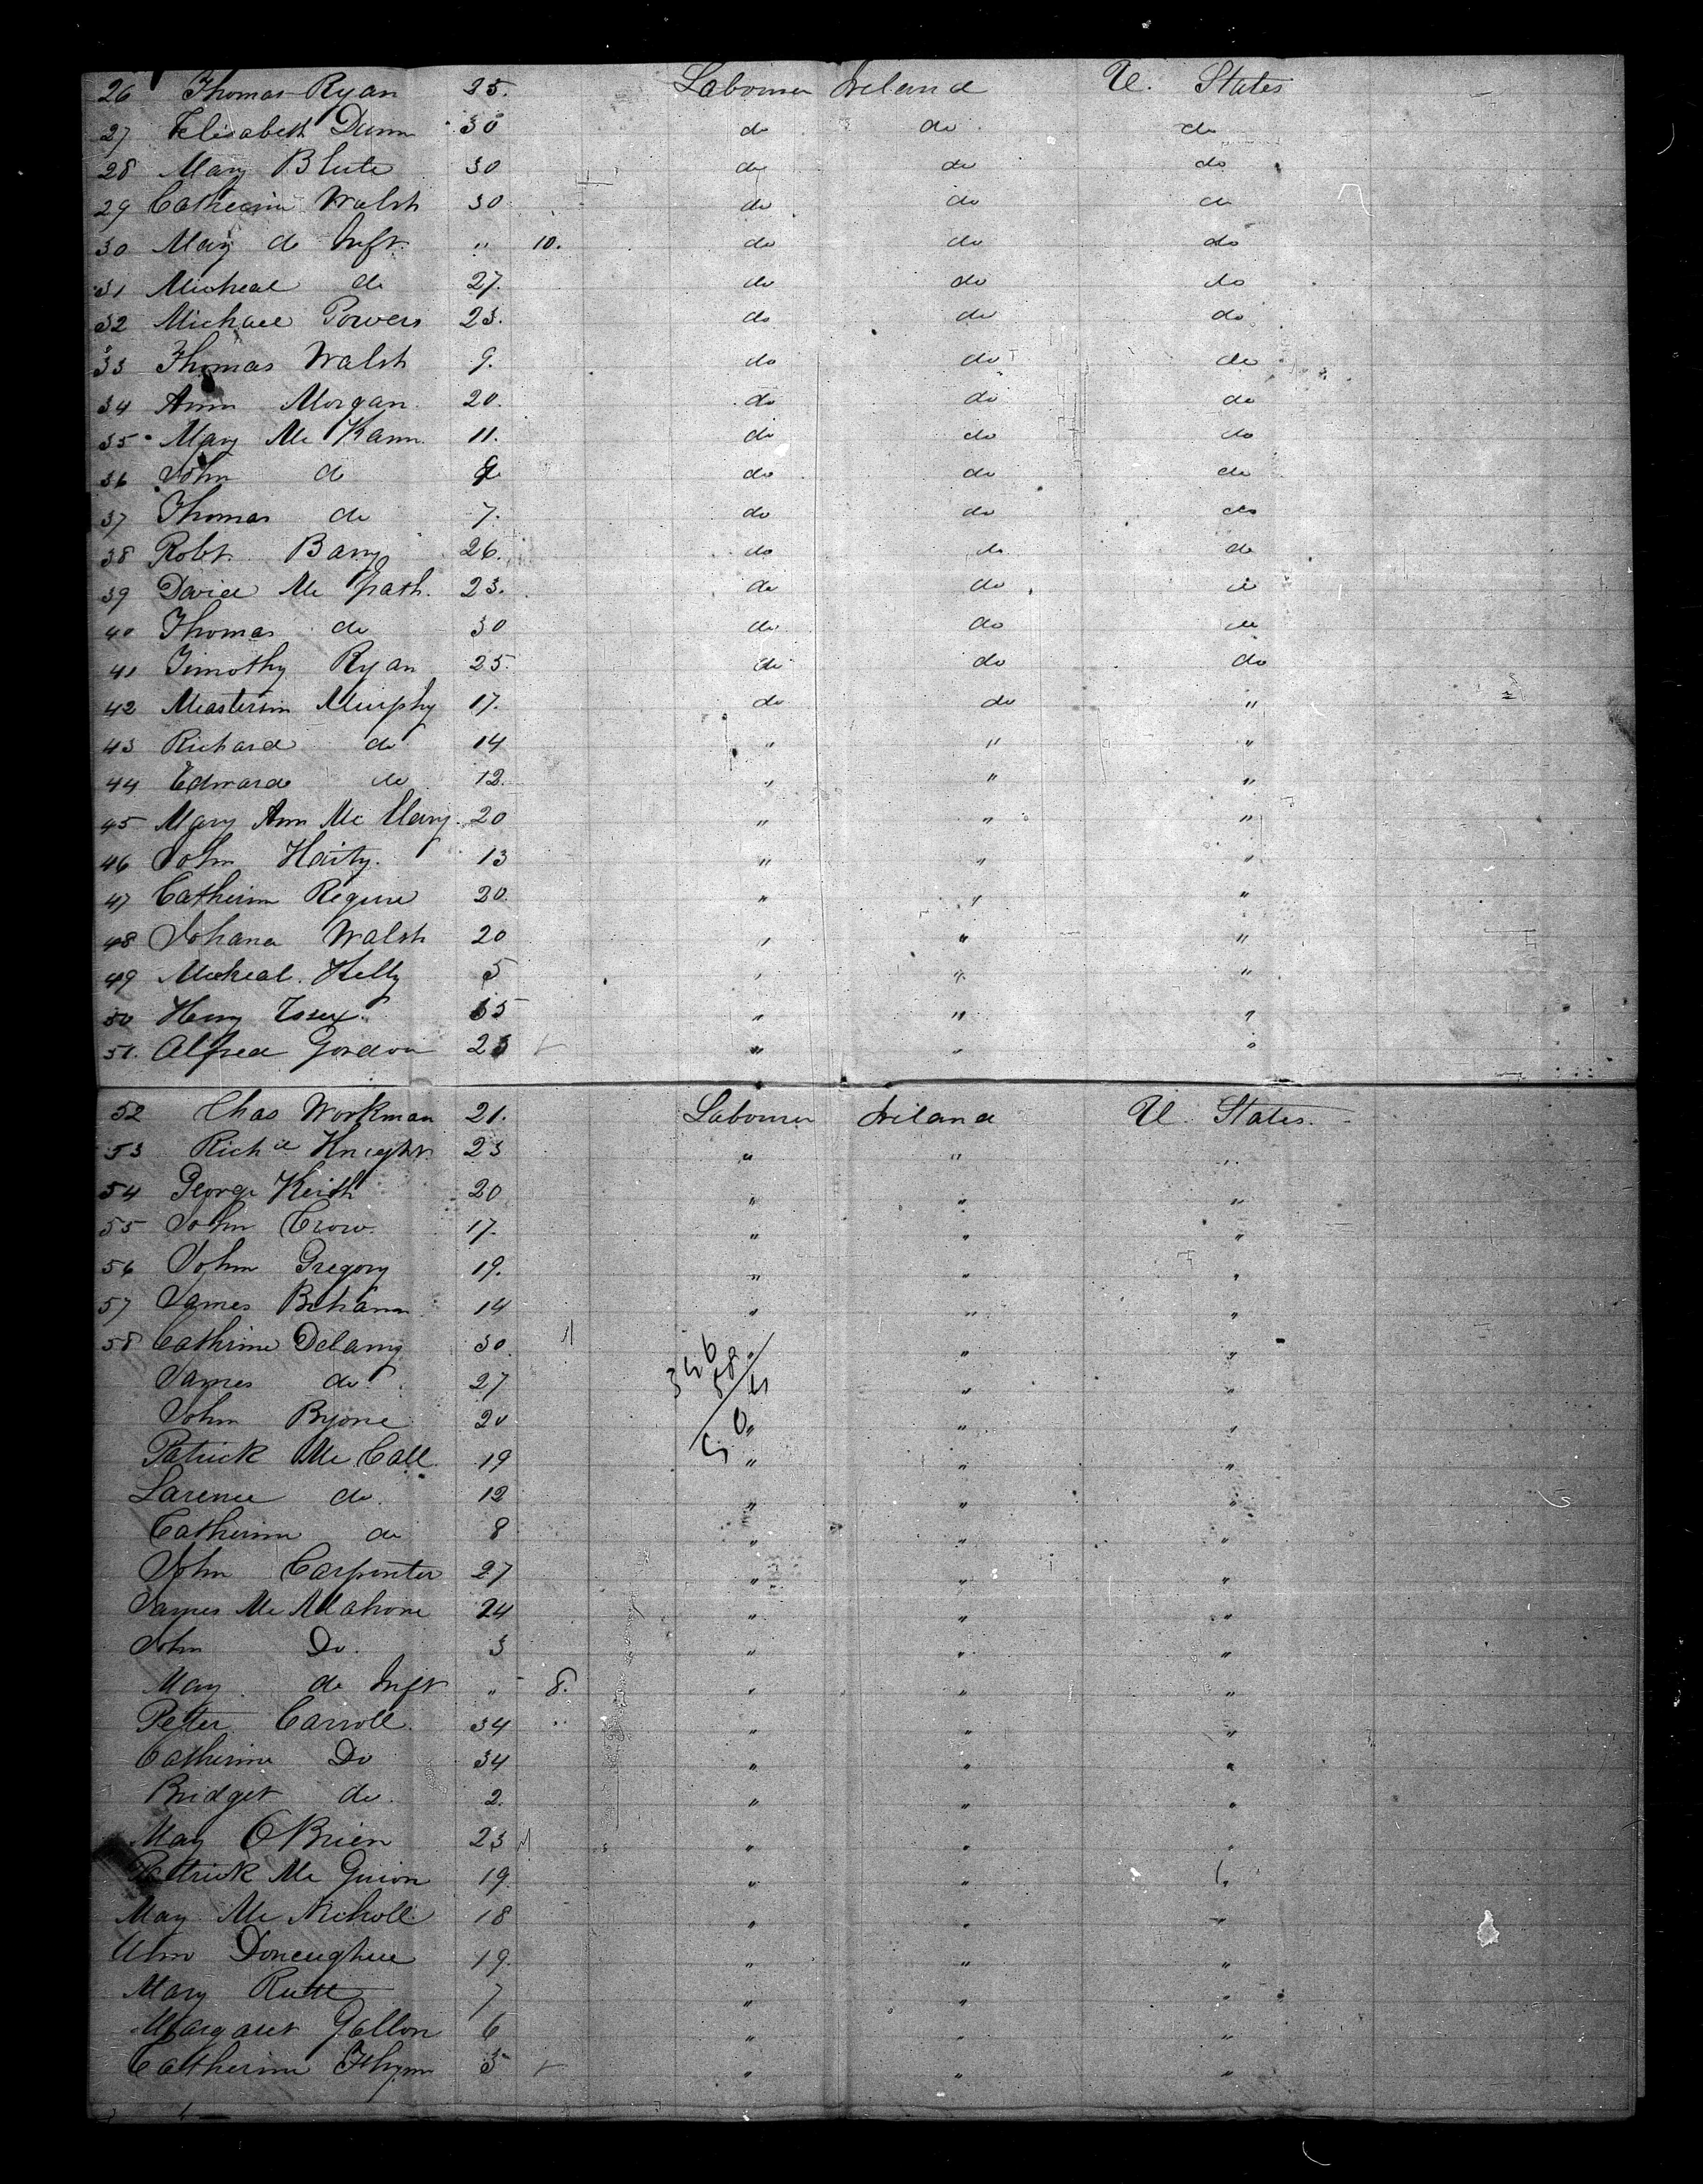 26 Thomas Ryan 25. Labourer Ireland U. States
27 Elisabeth Dunn 30 do do do
28 Mary Blute 30 do do do
29 Catherine Walsh 30 do do do
30 Mary do Inft " 10. do do do
31 Micheal do 27 do do do
32 Michael Powers 23. do do do
33 Thomas Walsh 9. do do do
34 Ann Morgan 20. do do do
35 Mary Mc Kann 11. do do do
36 John do 9 do do do
37 Thomas do 7. do do do
38 Robt. Barry 26. do do do
39 David Mc Grath. 23. do do do
40 Thomas do 30 do do do
41 Timothy Ryan 25. do do do
42 Murphy 17. do do "
43 Richard do 14 " " "
44 Edward do 12. " " "
45 Mary Ann Mc 20 " " "
46 John Harty. 13 " " "
47 Catherine 20. " " "
48 Johana Walsh 20 " " "
49 Micheal Kelly 5 " " "
50 Henry 35 " " "
51. Alfred Gordon 23 " " "
52 Chas Workman 21. Labourer Ireland U. States.
53 Richd Knight 23 " " "
54 George Keith 20 " " "
55 John Crow. 17. " " "
56 John Gregory 19. " " "
57 James Behann 14 " " "
58 Cathrine Delany 30. " " "
James do 27 " " "
John Byone 20 " " "
Patrick Mc Call 19 " " "
Larence do. 12 " " "
Catherine do 8 " " "
John Carpenter 27 " " "
James Mc Mahone 24 " " "
John Do. 3 " " "
Mary do Inft " 8. " " "
Peter Carroll. 34 " " "
Catherine Do 34 " " "
Bridget do. 2. " " "
May O Brien 23 " " "
Patrick Mc Guion 19. " " "
May Mc Nicholl 18 " " "
Donoughue 19. " " "
Mary Rutte 7 " " "
Margaret Gallon 6 " " "
Catherine Flynn 5 " " "